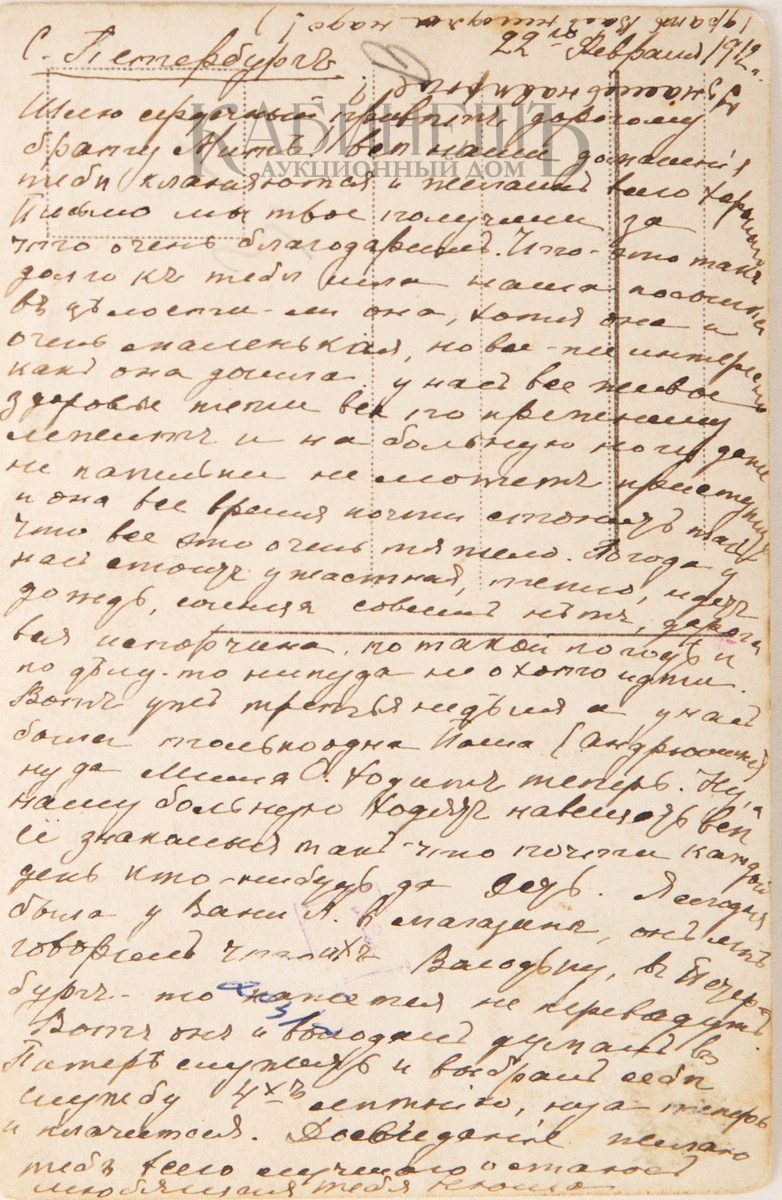 С. Петербургъ 22го Февраля 1912 г.
Шлю сердечный приветъ дорогому
КАБИНЕТЪ
АУКЦИОННЫЙ ДОМ
братцу Мить. Все наши домашнія
тебе кланяются и желаютъ всего хорошаго
Письмо мы твое получили за
что очень благодаримъ. Что-это такъ
долго къ тебе шла наша посылка
въ целости-ли она, хотя она и
очень маленькая, но все-же интересно
какъ она дошла. у насъ все живое
здоровье тети все по прежнему
лежитъ и на больную ногу даже
не капельки не можетъ приступить
и она все время почти стонетъ такъ
что все это очень тяжело. Погода у
насъ стоитъ ужасная, тепло, идетъ
дождь, совсемъ нетъ, дорога
вся испорчена, по такой погоде и
по делу-то никуда не охото идти.
Вотъ уже третья неделя а у насъ
была только одна Паша (Андрюшина)
ну да Миша С. ходитъ теперь. Ну, а
нашу больную ходятъ навещать все
её знакомыя такъ-что почти каждый
день кто-нибудь да есть. Я сегодня
была у Вани А. в магазине, онъ мне
говорилъ что ихъ Володьку, в Петер
бургъ-то кажется не переведутъ.
Вотъ онъ и думалъ въ
Питере служить и выбралъ себе
службу 4хъ летнію, теперь
и плачется. Досвиданіе желаю
тебе всего лучшаго остаюсь
любящая тебя